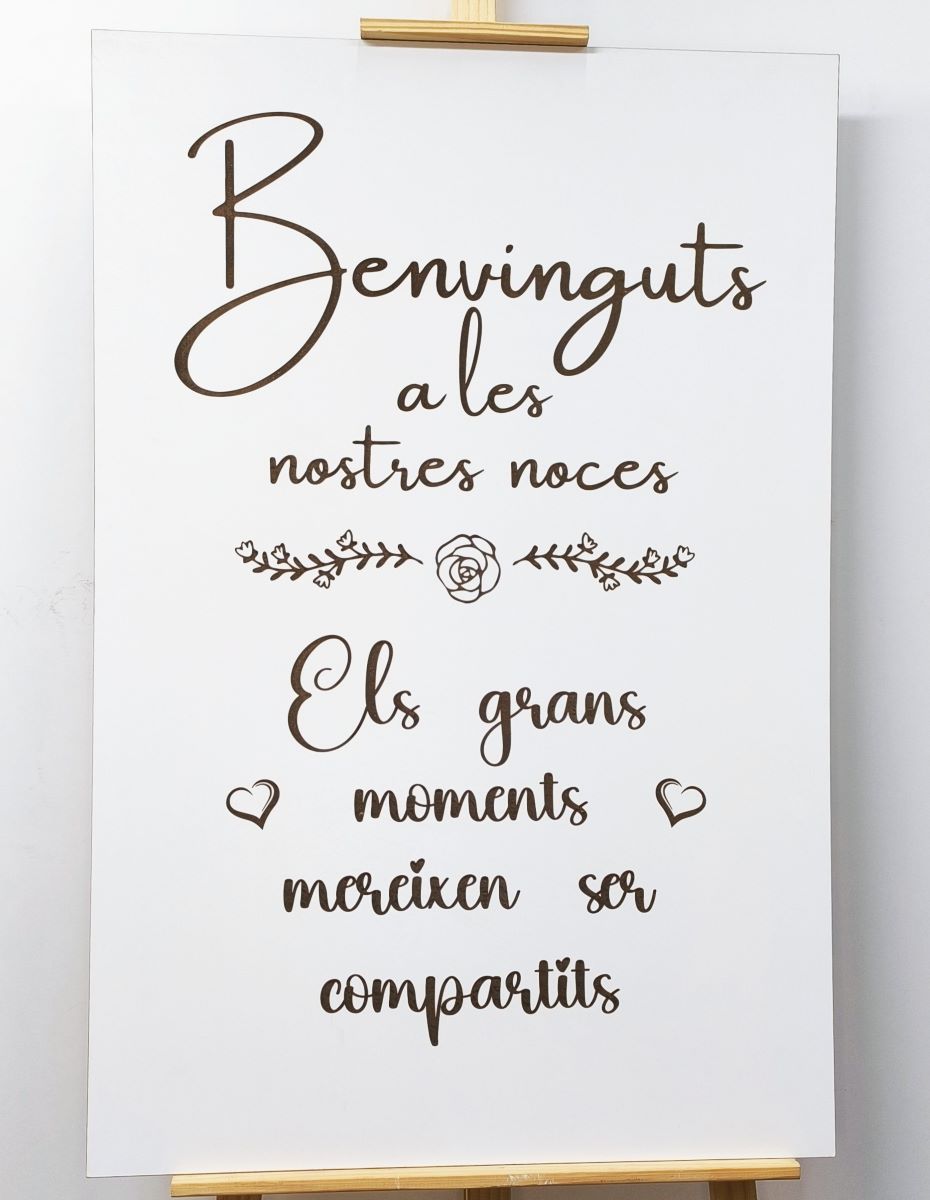 Benvinguts
a les
nostres noces
Els grans
moments
mereixen ser
compartits